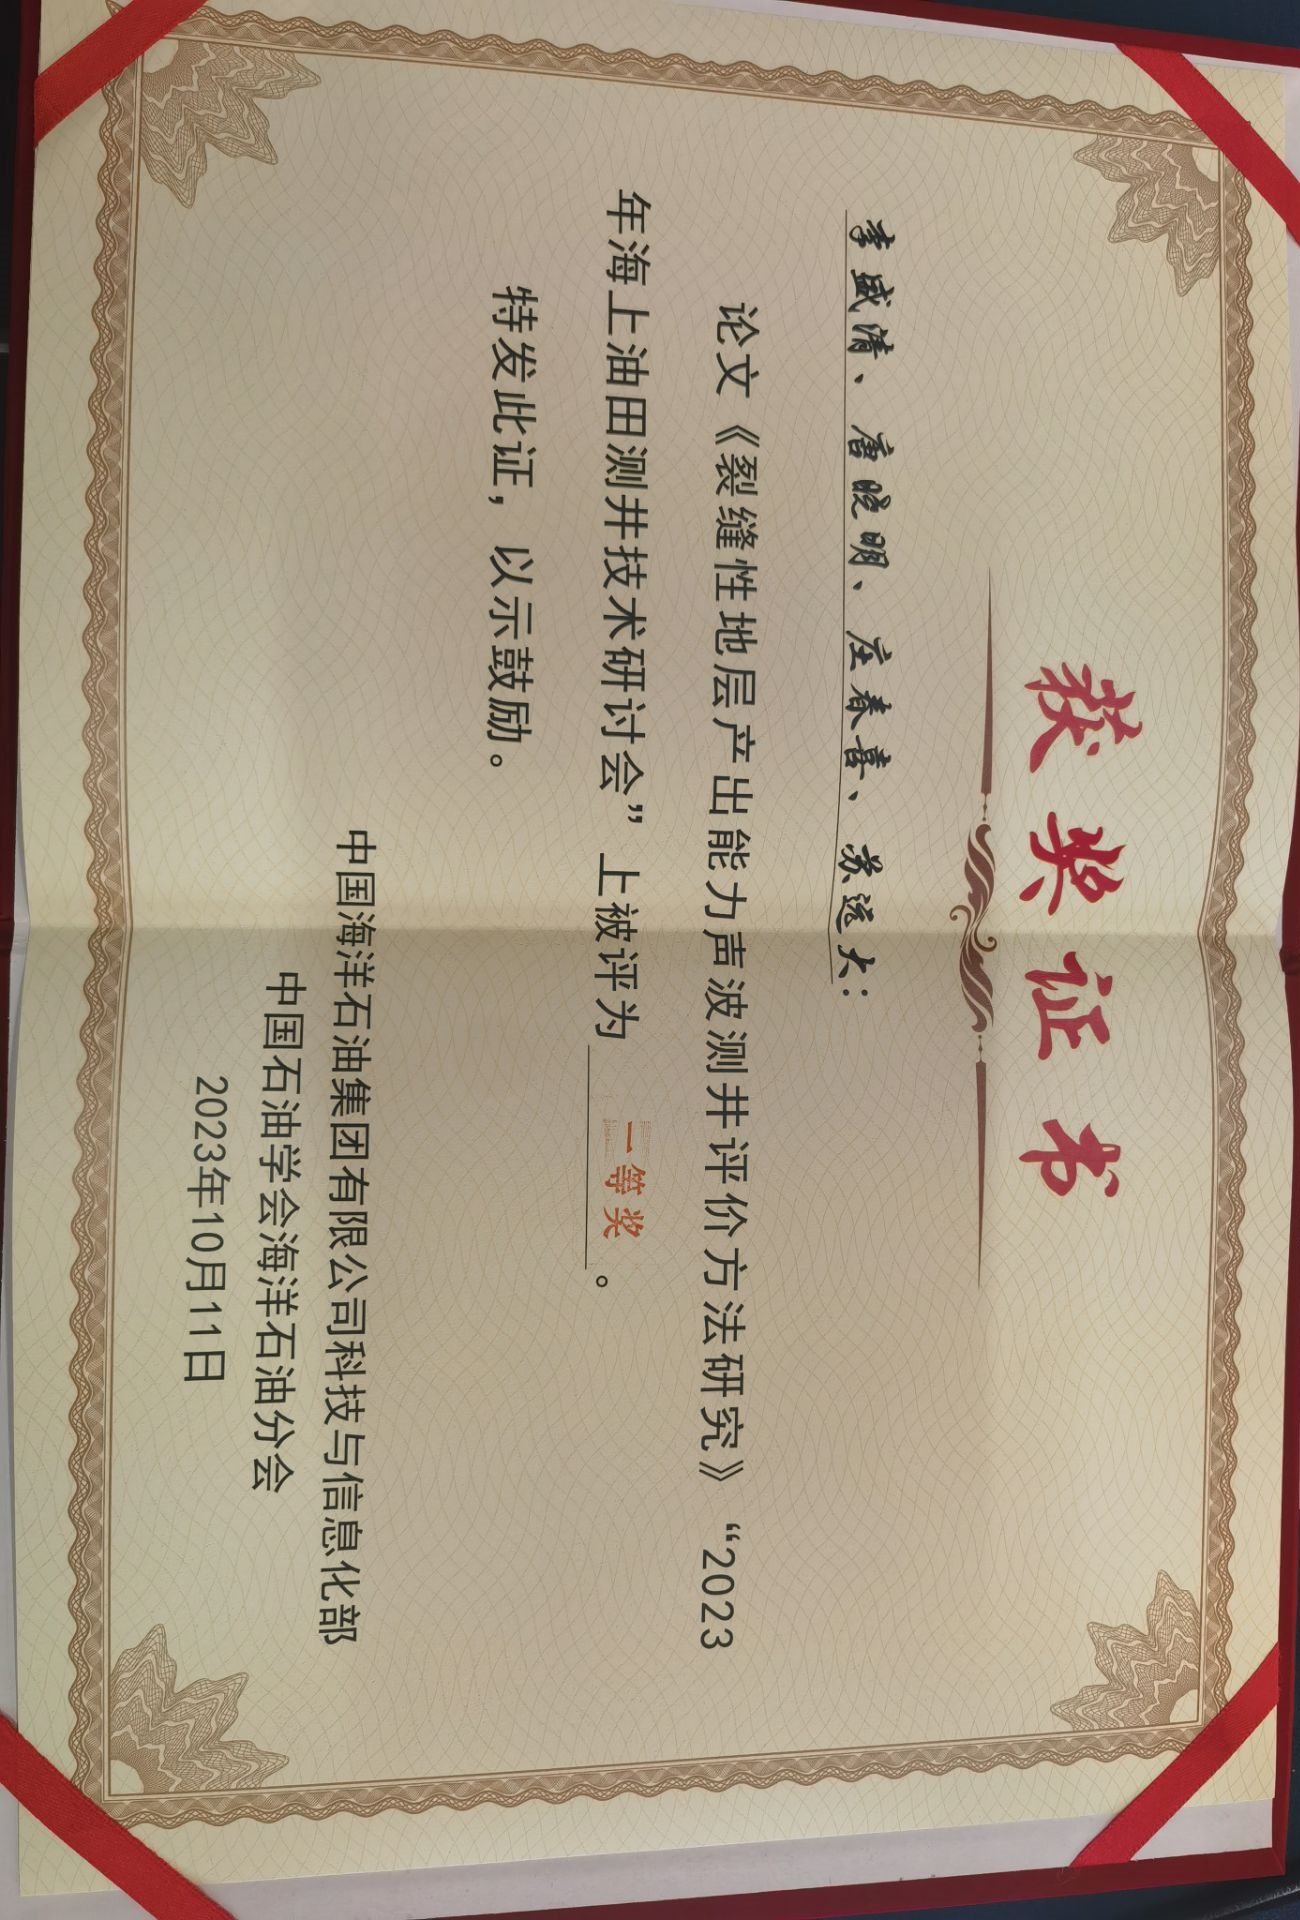 获奖证书
李盛清、唐晓明、庄春喜、苏远大:
论文《裂缝性地层产出能力声波测井评价方法研究》“2023
年海上油田测井技术研讨会”上被评为 一等奖 。
特发此证，以示鼓励。
中国海洋石油集团有限公司科技与信息化部
中国石油学会海洋石油分会
2023年10月11日